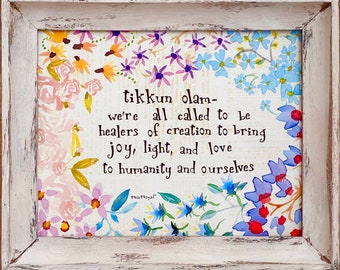 tikkun olam-
we're all called to be
healers of creation to bring
joy, light, and love
to humanity and ourselves